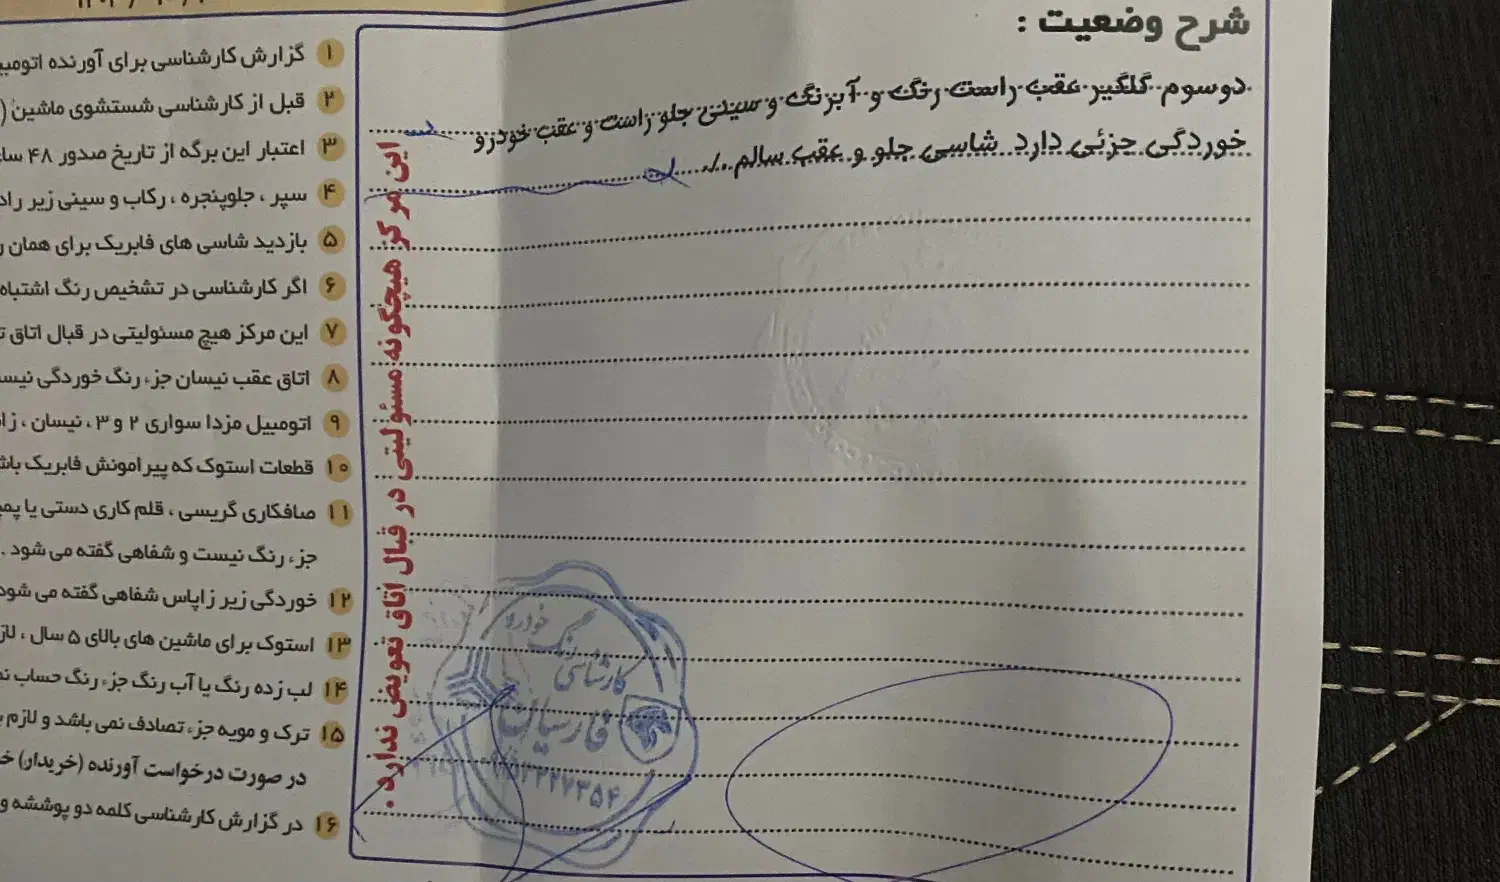 شرح وضعیت :
دوسوم گلگیر عقب راست رنگ و آبرنگ و سینی جلو راست و عقب خودرو
خوردگی جزئی دارد شاسی جلو و عقب سالم ./.
این مرکز هیچگونه مسئولیتی در قبال اتاق تعویض ندارد.
۱ گزارش کارشناسی برای آورنده
۲ قبل از کارشناسی شستشوی ماشین (
۳ اعتبار این برگه از تاریخ صدور ۴۸
۴ سپر ، جلوپنجره ، رکاب و سینی زیر
۵ بازدید شاسی های فابریک برای همان
۶ اگر کارشناسی در تشخیص رنگ اشتباه
۷ این مرکز هیچ مسئولیتی در قبال اتاق
۸ اتاق عقب نیسان جزء رنگ خوردگی
۹ اتومبیل مزدا سواری ۲ و ۳ ، نیسان ،
۱۰ قطعات استوک که پیرامونش فابریک
۱۱ صافکاری گریسی ، قلم کاری دستی یا
جزء رنگ نیست و شفاهی گفته می شود .
۱۲ خوردگی زیر زاپاس شفاهی گفته می شود
۱۳ استوک برای ماشین های بالای ۵ سال ،
۱۴ لب زده رنگ یا آب رنگ جزء رنگ حساب
۱۵ ترک و مویه جزء تصادف نمی باشد و لازم
در صورت درخواست آورنده (خریدار)
۱۶ در گزارش کارشناسی کلمه دو پوششه و
کارشناسی رنگ خودرو
فارسیان